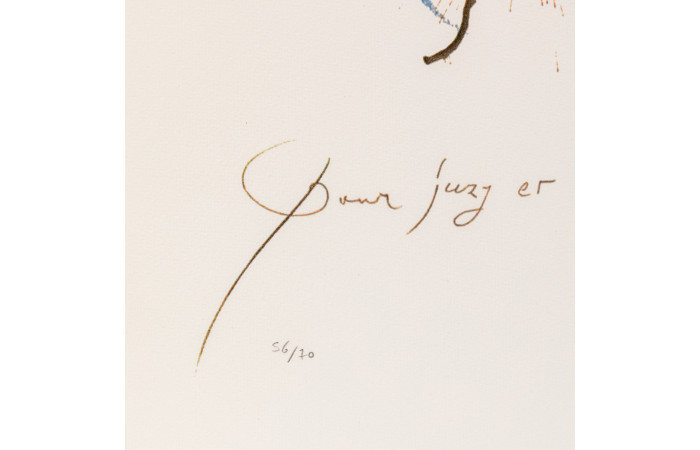 Pour juzy et
56/70